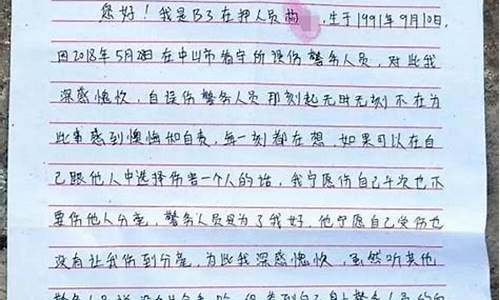 您好！我是B3在押人员，生于1991年9月10日，
因2018年5月2日在中山市看守所误伤警务人员，对此我
深感愧疚，自误伤警务人员那刻起无时无刻不在为
此事感到懊悔和自责，每一刻都在想，如果可以在自
己跟他人中选择伤害一个人的话，我宁愿伤自己千次也不
要伤他人分毫，警务人员是为了我好，他宁愿自己受伤也
没有让我伤到分毫，为此我深感愧疚，虽然听其他
警务人员说没有什么